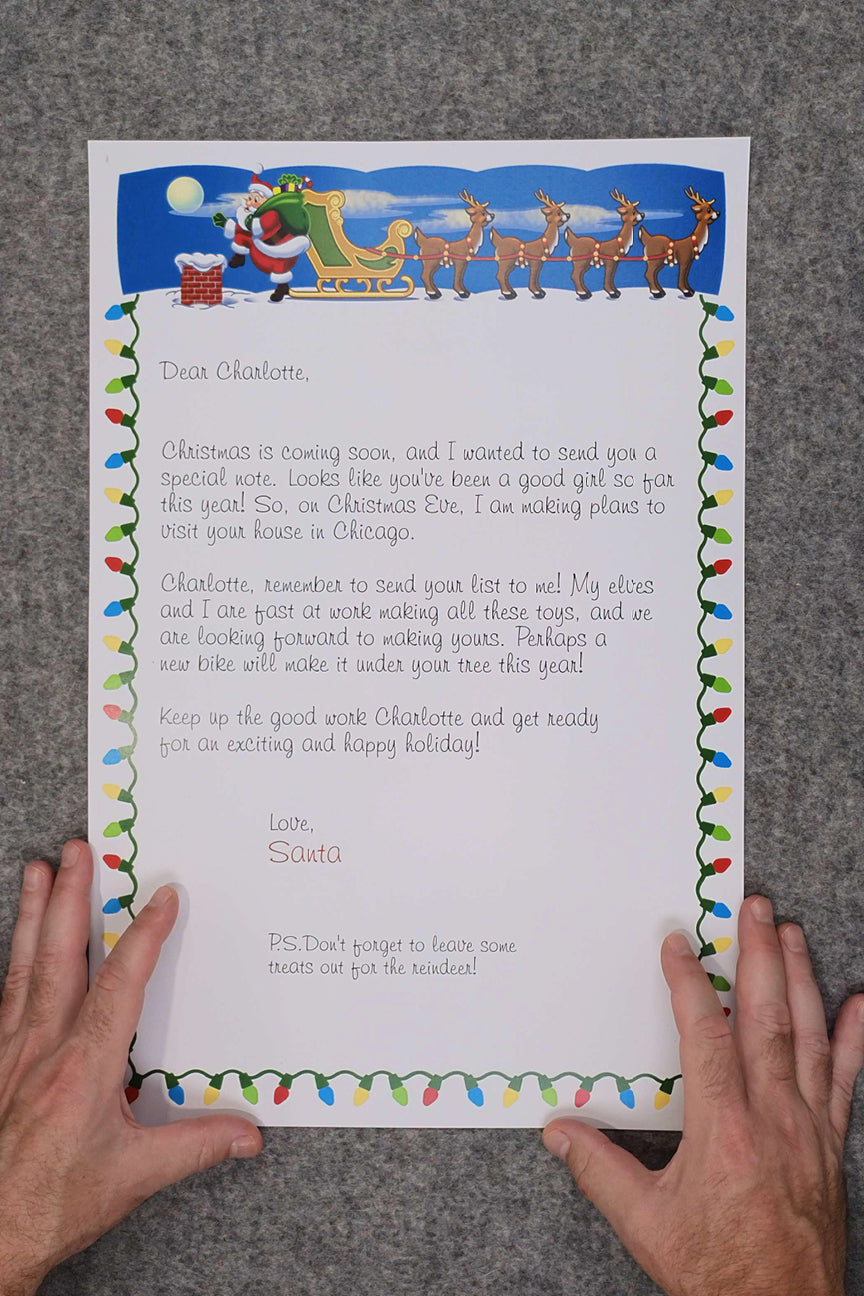 Dear Charlotte,
Christmas is coming soon, and I wanted to send you a
special note. Looks like you've been a good girl so far
this year! So, on Christmas Eve, I am making plans to
visit your house in Chicago.
Charlotte, remember to send your list to me! My elves
and I are fast at work making all these toys, and we
are looking forward to making yours. Perhaps a
new bike will make it under your tree this year!
Keep up the good work Charlotte and get ready
for an exciting and happy holiday!
Love,
Santa
P.S.Don't forget to leave some
treats out for the reindeer!